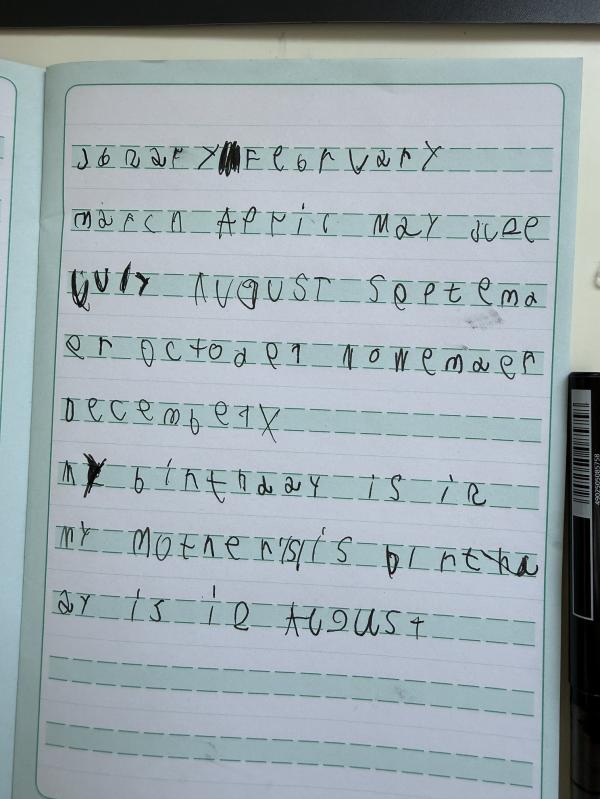 Janary Febrvary
march April may June
July August Septema
er Octoder November
Decembery
my birthday is in
my mother's is birthd
ay is in August
4902505085758